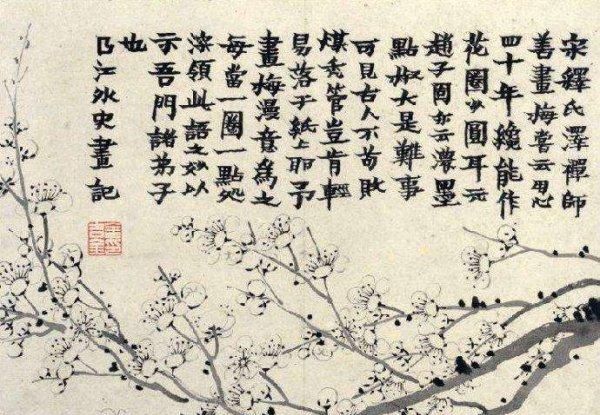 宋釋氏澤禪師
善畫梅嘗云用心
四十年纔能作
花圈少圓耳元
趙子固亦云濃墨
點椒大是難事
可見古人不苟敗
煤禿管豈肯輕
易落于紙上耶予
畫梅漫意為之
每當一圈一點處
深領此語之妙以
示吾門諸弟子
也
曲江外史畫記